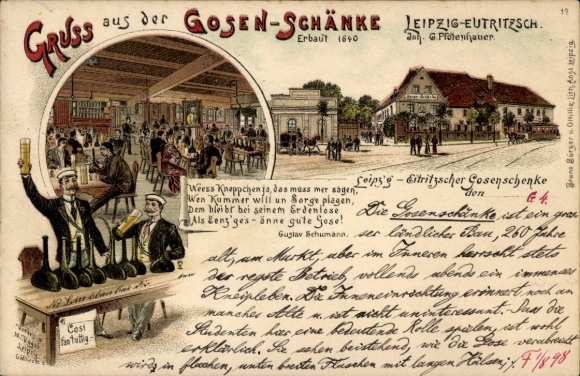 GRUSS aus der GOSEN-SCHÄNKE
Erbaut 1640
LEIPZIG-EUTRITZSCH.
Inh. G. Pfotenhauer.
19
Bruno Bürger & Ottillie, Lith. Anst. Leipzig
Weess Kneppchen ja, das muss mer sagen,
Wen Kummer will un Sorge plagen,
Dem bleibt bei seinem Erdenlose
Als Eenz'ges - änne gute Gose!
Gustav Schumann.
Cosi fan tuttig.
Leipz'g - Eitritzscher Gosenschenke
den 6.4.
Die Gosenschänke ist ein ganz
ser ländlicher Bau, 260 Jahre
alt, um Markt, aber im Inneren herrscht stets
der regste Betrieb, vollends abends ein immenses
Kneipleben. Die Inneneinrichtung erinnert noch an
manches Alte u. ist nicht uninteressant. Dass die
Studenten hier eine bedeutende Rolle spielen, ist wohl
erklärlich. Sie sehen beistehend, wie die Gose verabreicht
wird in flaschen, unten breiten Flaschen mit langen Hälsen;
1/8 98